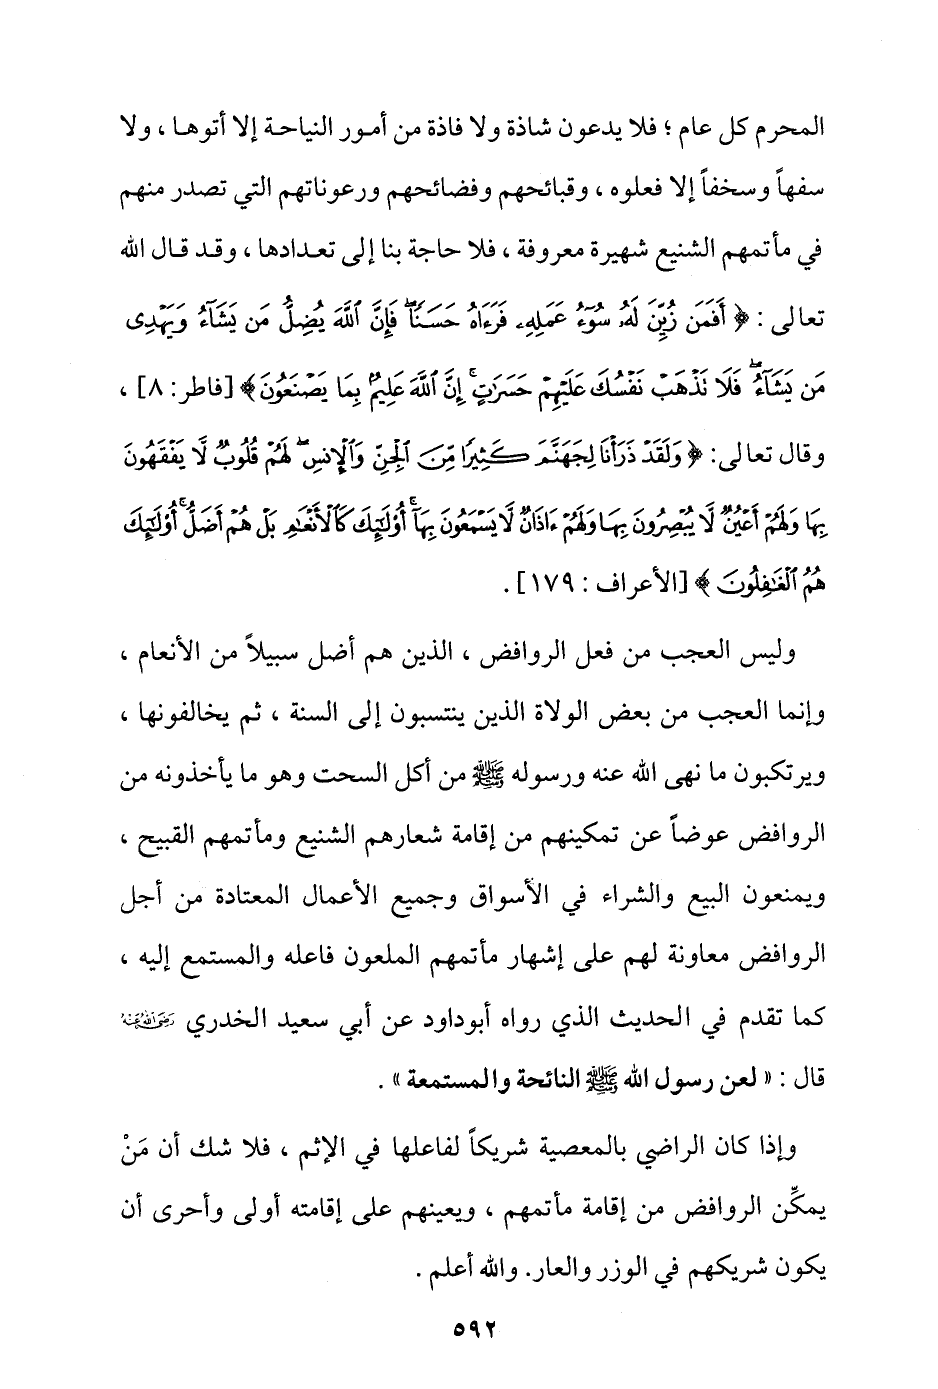 المحرم كل عام ؛ فلا يدعون شاذة ولا فاذة من أمور النياحة إلا أتوها ، ولا
سفهاً وسخفاً إلا فعلوه ، وقبائحهم وفضائحهم ورعوناتهم التي تصدر منهم
في مأتمهم الشنيع شهيرة معروفة ، فلا حاجة بنا إلى تعدادها ، وقد قال الله
تعالى : ﴿ أَفَمَن زُيِّنَ لَهُۥ سُوٓءُ عَمَلِهِۦ فَرَءَاهُ حَسَنٗاۖ فَإِنَّ ٱللَّهَ يُضِلُّ مَن يَشَآءُ وَيَهۡدِى
مَن يَشَآءُۖ فَلَا تَذۡهَبۡ نَفۡسُكَ عَلَيۡهِمۡ حَسَرَٰتٍۚ إِنَّ ٱللَّهَ عَلِيمُۢ بِمَا يَصۡنَعُونَ ﴾ [فاطر : ٨] ،
وقال تعالى : ﴿ وَلَقَدۡ ذَرَأۡنَا لِجَهَنَّمَ كَثِيرٗا مِّنَ ٱلۡجِنِّ وَٱلۡإِنسِۖ لَهُمۡ قُلُوبٞ لَّا يَفۡقَهُونَ
بِهَا وَلَهُمۡ أَعۡيُنٞ لَّا يُبۡصِرُونَ بِهَا وَلَهُمۡ ءَاذَانٞ لَّا يَسۡمَعُونَ بِهَآۚ أُوْلَٰٓئِكَ كَٱلۡأَنۡعَٰمِ بَلۡ هُمۡ أَضَلُّۚ أُوْلَٰٓئِكَ
هُمُ ٱلۡغَٰفِلُونَ ﴾ [الأعراف : ١٧٩] .
وليس العجب من فعل الروافض ، الذين هم أضل سبيلاً من الأنعام ،
وإنما العجب من بعض الولاة الذين ينتسبون إلى السنة ، ثم يخالفونها ،
ويرتكبون ما نهى الله عنه ورسوله ﷺ من أكل السحت وهو ما يأخذونه من
الروافض عوضاً عن تمكينهم من إقامة شعارهم الشنيع ومأتمهم القبيح ،
ويمنعون البيع والشراء في الأسواق وجميع الأعمال المعتادة من أجل
الروافض معاونة لهم على إشهار مأتمهم الملعون فاعله والمستمع إليه ،
كما تقدم في الحديث الذي رواه أبوداود عن أبي سعيد الخدري رَضِيَ اللَّهُ عَنْهُ
قال : « لعن رسول الله ﷺ النائحة والمستمعة » .
وإذا كان الراضي بالمعصية شريكاً لفاعلها في الإثم ، فلا شك أن مَنْ
يمكِّن الروافض من إقامة مأتمهم ، ويعينهم على إقامته أولى وأحرى أن
يكون شريكهم في الوزر والعار. والله أعلم .
٥٩٢